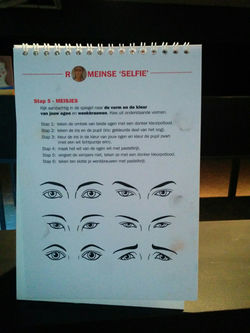 R MEINSE 'SELFIE'
Stap 5 - MEISJES
Kijk aandachtig in de spiegel naar de vorm en de kleur
van jouw ogen en wenkbrauwen. Kies uit onderstaande vormen.
Stap 1: teken de omtrek van beide ogen met een donker kleurpotlood.
Stap 2: teken de iris en de pupil (iris: gekleurde deel van het oog).
Stap 3: kleur de iris in de kleur van jouw ogen en kleur de pupil zwart
met een wit lichtpuntje erin).
Stap 4: maak het wit van de ogen wit met pastelkrijt.
Stap 5: vergeet de wimpers niet, teken ze met een donker kleurpotlood.
Stap 6: teken ten slotte je wenkbrauwen met pastelkrijt.